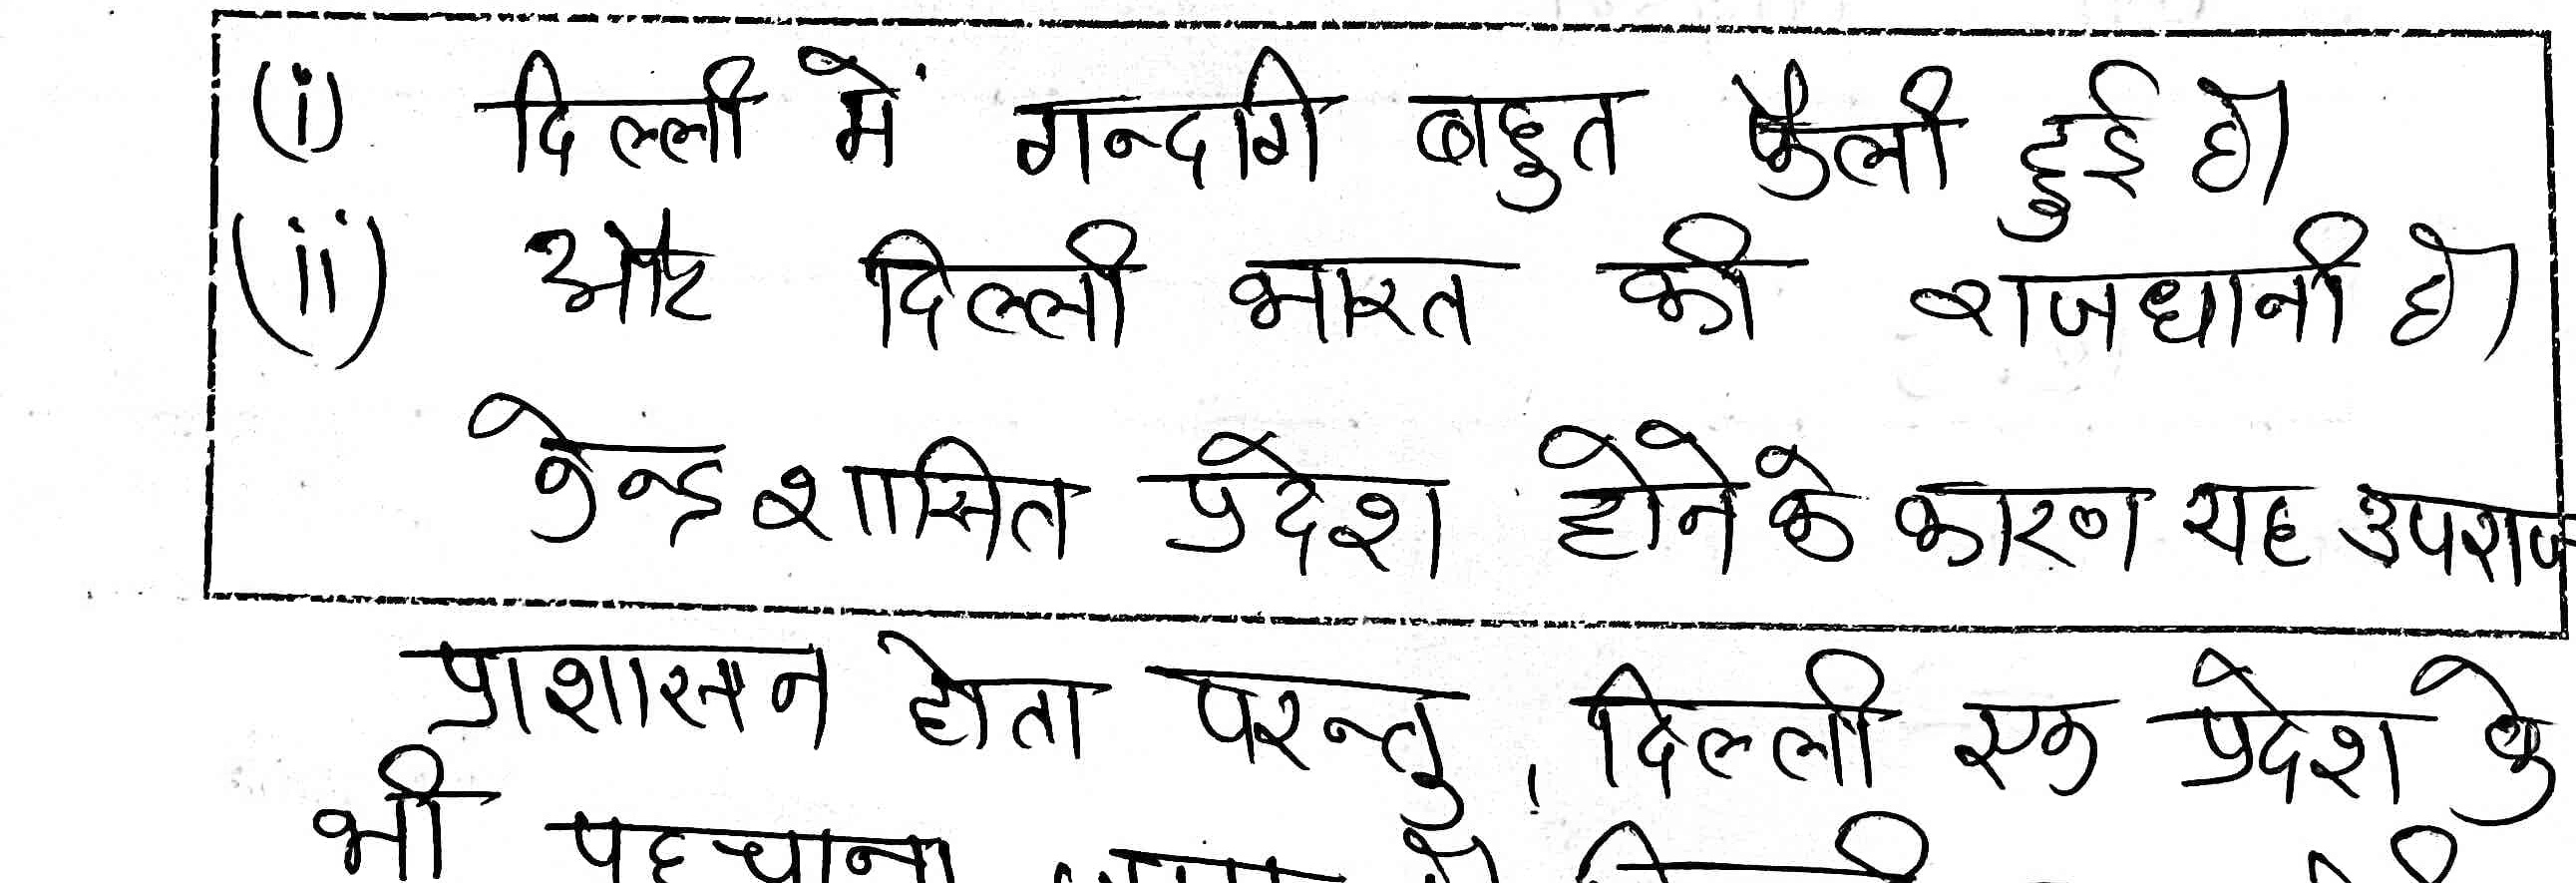 (i) दिल्ली में गन्दगि बहुत फैली हुई है।
(ii) और दिल्ली भारत की राजधानी है।
केन्द्र शासित प्रदेश होने के कारण यह उपराज
प्राशासन होता परन्तु, दिल्ली एक प्रदेश के
भी पहचाना